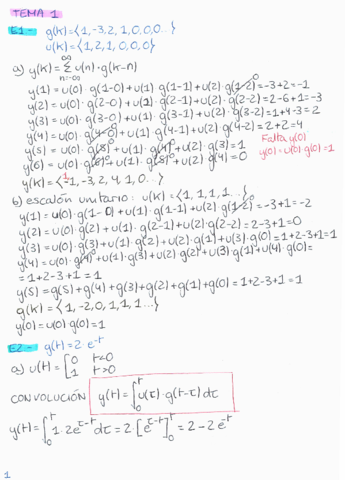 TEMA 1
E1- g(k)={1,-3,2,1,0,0,0...}
u(k)={1,2,1,0,0,0}
a) y(k)=∑ u(n)·g(k-n)
y(1)=u(0)·g(1-0)+u(1)·g(1-1)+u(2)·g(1-2)=-3+2=-1
y(2)=u(0)·g(2-0)+u(1)·g(2-1)+u(2)·g(2-2)=2-6+1=-3
y(3)=u(0)·g(3-0)+u(1)·g(3-1)+u(2)·g(3-2)=1+4-3=2
y(4)=u(0)·g(4-0)+u(1)·g(4-1)+u(2)·g(4-2)=2+2=4
y(5)=u(0)·g(5)+u(1)·g(4)+u(2)·g(3)=1 Falta y(0)
y(6)=u(0)·g(6)+u(1)·g(5)+u(2)·g(4)=0 y(0)=u(0)·g(0)=1
y(k)={1,-1,-3,2,4,1,0...}
b) escalón unitario: u(k)={1,1,1,1...}
y(1)=u(0)·g(1-0)+u(1)·g(1-1)+u(2)·g(1-2)=-3+1=-2
y(2)=u(0)·g(2)+u(1)·g(2-1)+u(2)·g(2-2)=2-3+1=0
y(3)=u(0)·g(3)+u(1)·g(2)+u(2)·g(1)+u(3)·g(0)=1+2-3+1=1
y(4)=u(0)·g(4)+u(1)·g(3)+u(2)·g(2)+u(3)·g(1)+u(4)·g(0)=
=1+2-3+1=1
y(5)=g(5)+g(4)+g(3)+g(2)+g(1)+g(0)=1+2-3+1=1
g(k)={1,-2,0,1,1,1...}
y(0)=u(0)·g(0)=1
E2- g(t)=2·e^-t
a) u(t)=[0 t<0
1 t>0
CONVOLUCIÓN y(t)=∫₀ᵗ u(τ)·g(t-τ)dτ
y(t)=∫₀ᵗ 1·2e^τ-t dτ=2·[e^τ-t]₀ᵗ=2-2e^-t
1